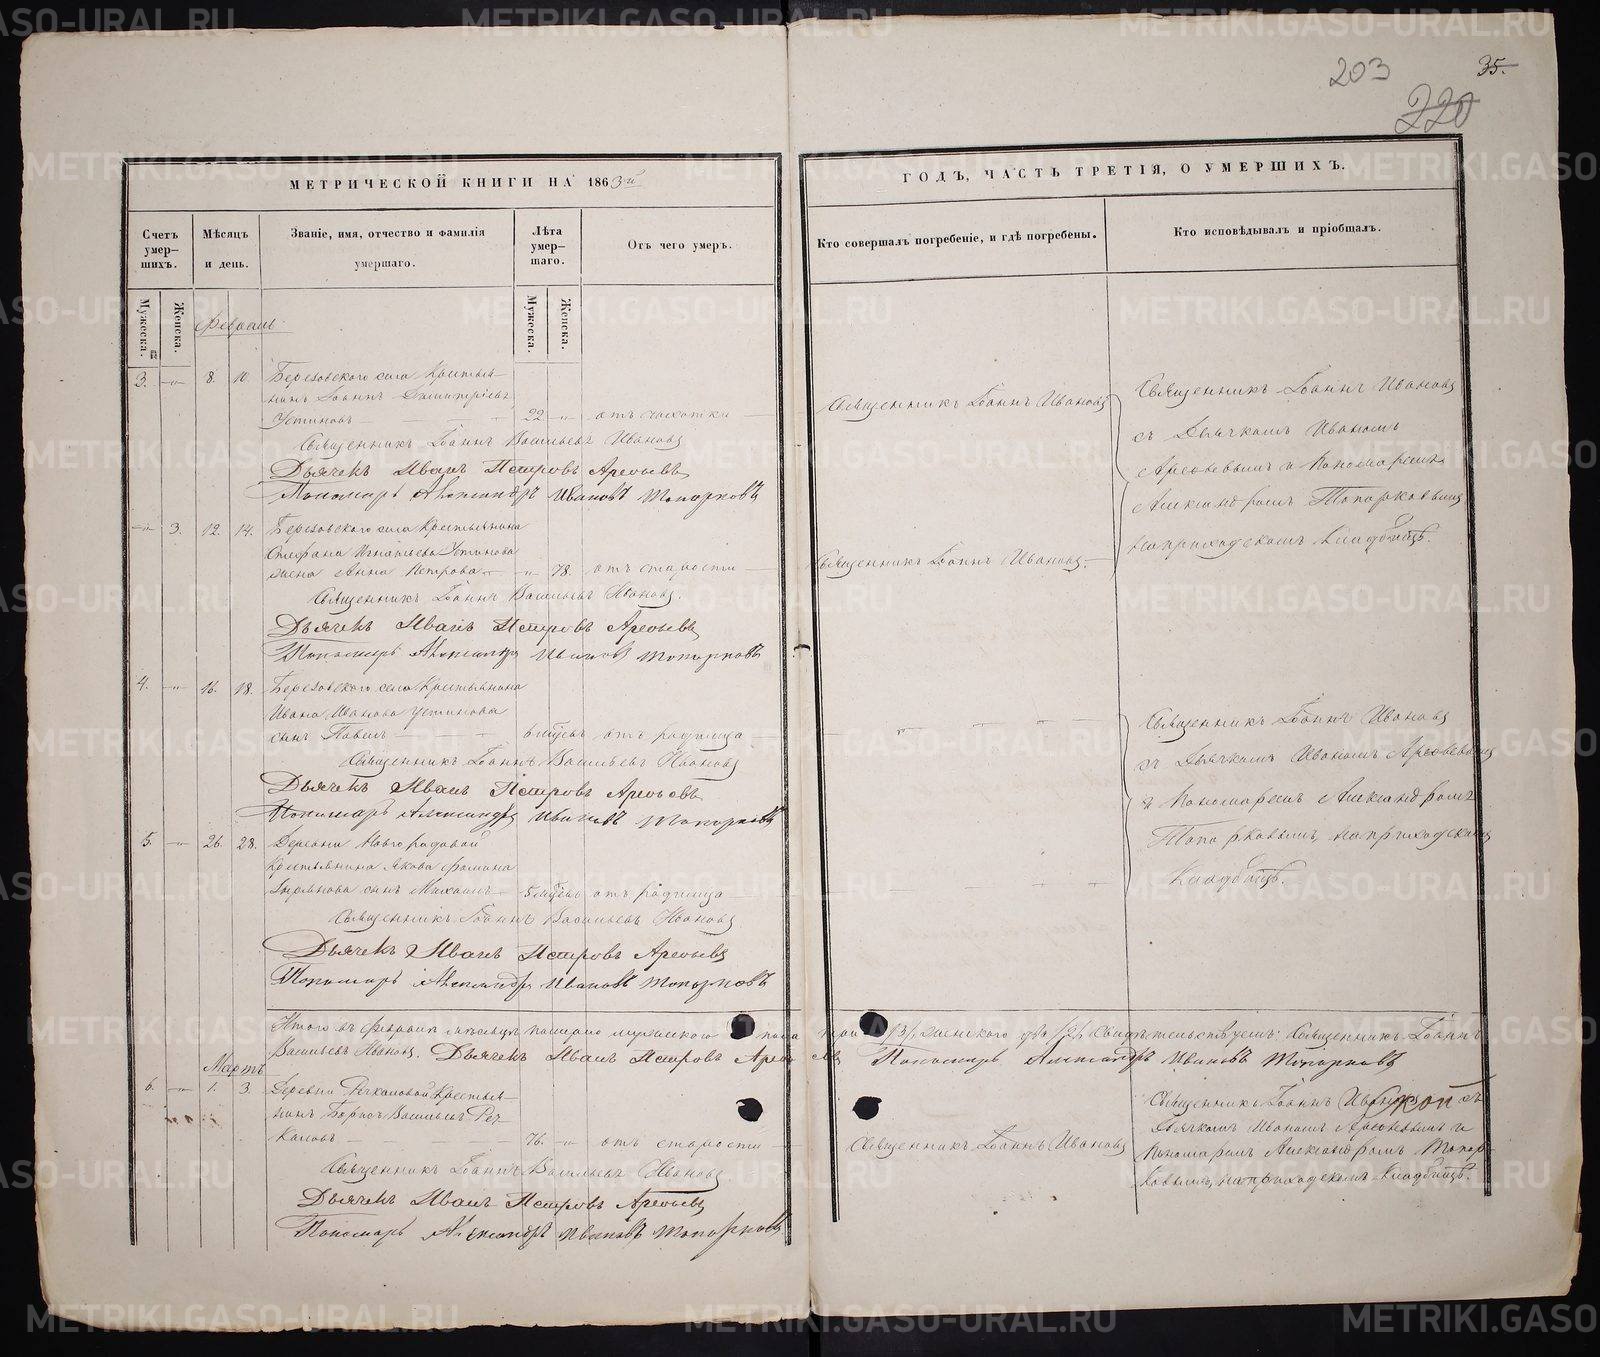 203
35.
220
МЕТРИЧЕСКОЙ КНИГИ НА 1863й
ГОДЪ, ЧАСТЬ ТРЕТІЯ, О УМЕРШИХЪ.
Счетъ умер-
шихъ.
Мѣсяцъ
и день.
Званіе, имя, отчество и фамилія
умершаго.
Лѣта
умер-
шаго.
Отъ чего умеръ.
Кто совершалъ погребеніе, и гдѣ погребены.
Кто исповѣдывалъ и пріобщалъ.
Мужеска.
Женска.
Мужеска.
Женска.
Февраль
3. -"- 8. 10. Березовского села Крестья-
нинъ Іоаннъ Димитріевъ
Устиновъ 22 -"- отъ чахотки
Священникъ Іоаннъ Васильевъ Ивановъ
Дьячекъ Иванъ Петровъ Арефьевъ
Пономарь Александръ Ивановъ Топорковъ
Священникъ Іоаннъ Ивановъ
Священникъ Іоаннъ Ивановъ
съ Дьячкомъ Иваномъ
Арефьевымъ и Пономаремъ
Александромъ Топорковымъ
на приходскомъ кладбищѣ.
-"- 3. 12. 14. Березовского села Крестьянина
Стефана Игнатьева Устинова
жена Анна Петрова -"- 78. отъ старости
Священникъ Іоаннъ Васильевъ Ивановъ.
Дьячекъ Иванъ Петровъ Арефьевъ
Пономарь Александръ Ивановъ Топорковъ
Священникъ Іоаннъ Ивановъ.
4. -"- 16. 18. Березовского села Крестьянина
Ивана Иванова Устинова
сынъ Павелъ 6 мѣсяц. отъ родимца
Священникъ Іоаннъ Васильевъ Ивановъ
Дьячекъ Иванъ Петровъ Арефьевъ
Пономарь Александръ Ивановъ Топорковъ
Священникъ Іоаннъ Ивановъ
съ Дьячкомъ Иваномъ Арефьевымъ
и Пономаремъ Александромъ
Топорковымъ, на приходскомъ
Кладбищѣ.
5. -"- 26. 28. Деревни Новгородовой
Крестьянина Якова Фомина
сынъ Михаилъ 5 мѣсяц. отъ родимца
Священникъ Іоаннъ Васильевъ Ивановъ
Дьячекъ Иванъ Петровъ Арефьевъ
Пономарь Александръ Ивановъ Топорковъ
Итого въ Февралѣ мѣсяцѣ померло мужескаго пола три /3/, женского два /2/. Свидѣтельствуемъ: Священникъ Іоаннъ
Васильевъ Ивановъ. Дьячекъ Иванъ Петровъ Арефьевъ Пономарь Александръ Ивановъ Топорковъ
Мартъ
6. -"- 1. 3. Деревни Речкаловой Крестья-
нинъ Борисъ Васильевъ Реч-
каловъ 76. -"- отъ старости
Священникъ Іоаннъ Васильевъ Ивановъ.
Дьячекъ Иванъ Петровъ Арефьевъ
Пономарь Александръ Ивановъ Топорковъ
Священникъ Іоаннъ Ивановъ
Священникъ Іоаннъ Ивановъ съ
Дьячкомъ Иваномъ Арефьевымъ и
Пономаремъ Александромъ Топор-
ковымъ, на приходскомъ Кладбищѣ.
METRIKI.GASO-URAL.RU